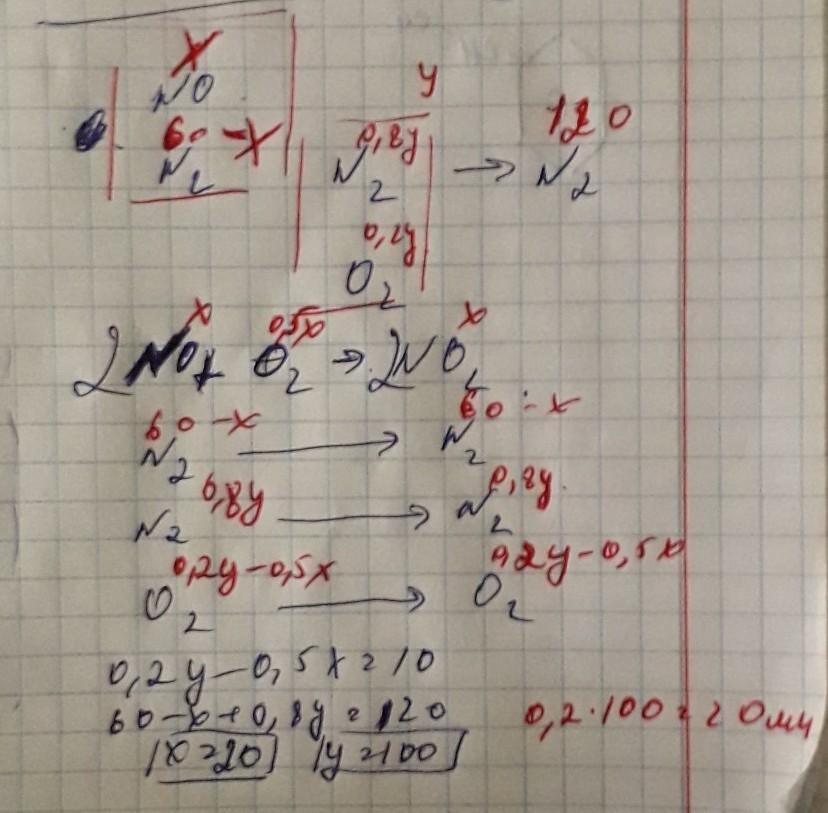 x
NO
60 - x
N2
y
0,8y
N2
0,2y
O2
→ 120
N2
x 0,5x x
2NO + O2 → 2NO2
60 - x 60 - x
N2 → N2
0,8y 0,8y
N2 → N2
0,2y - 0,5x 0,2y - 0,5x
O2 → O2
0,2y - 0,5x = 10
60 - x + 0,8y = 120 0,2·100 = 20мл
x = 20 y = 100